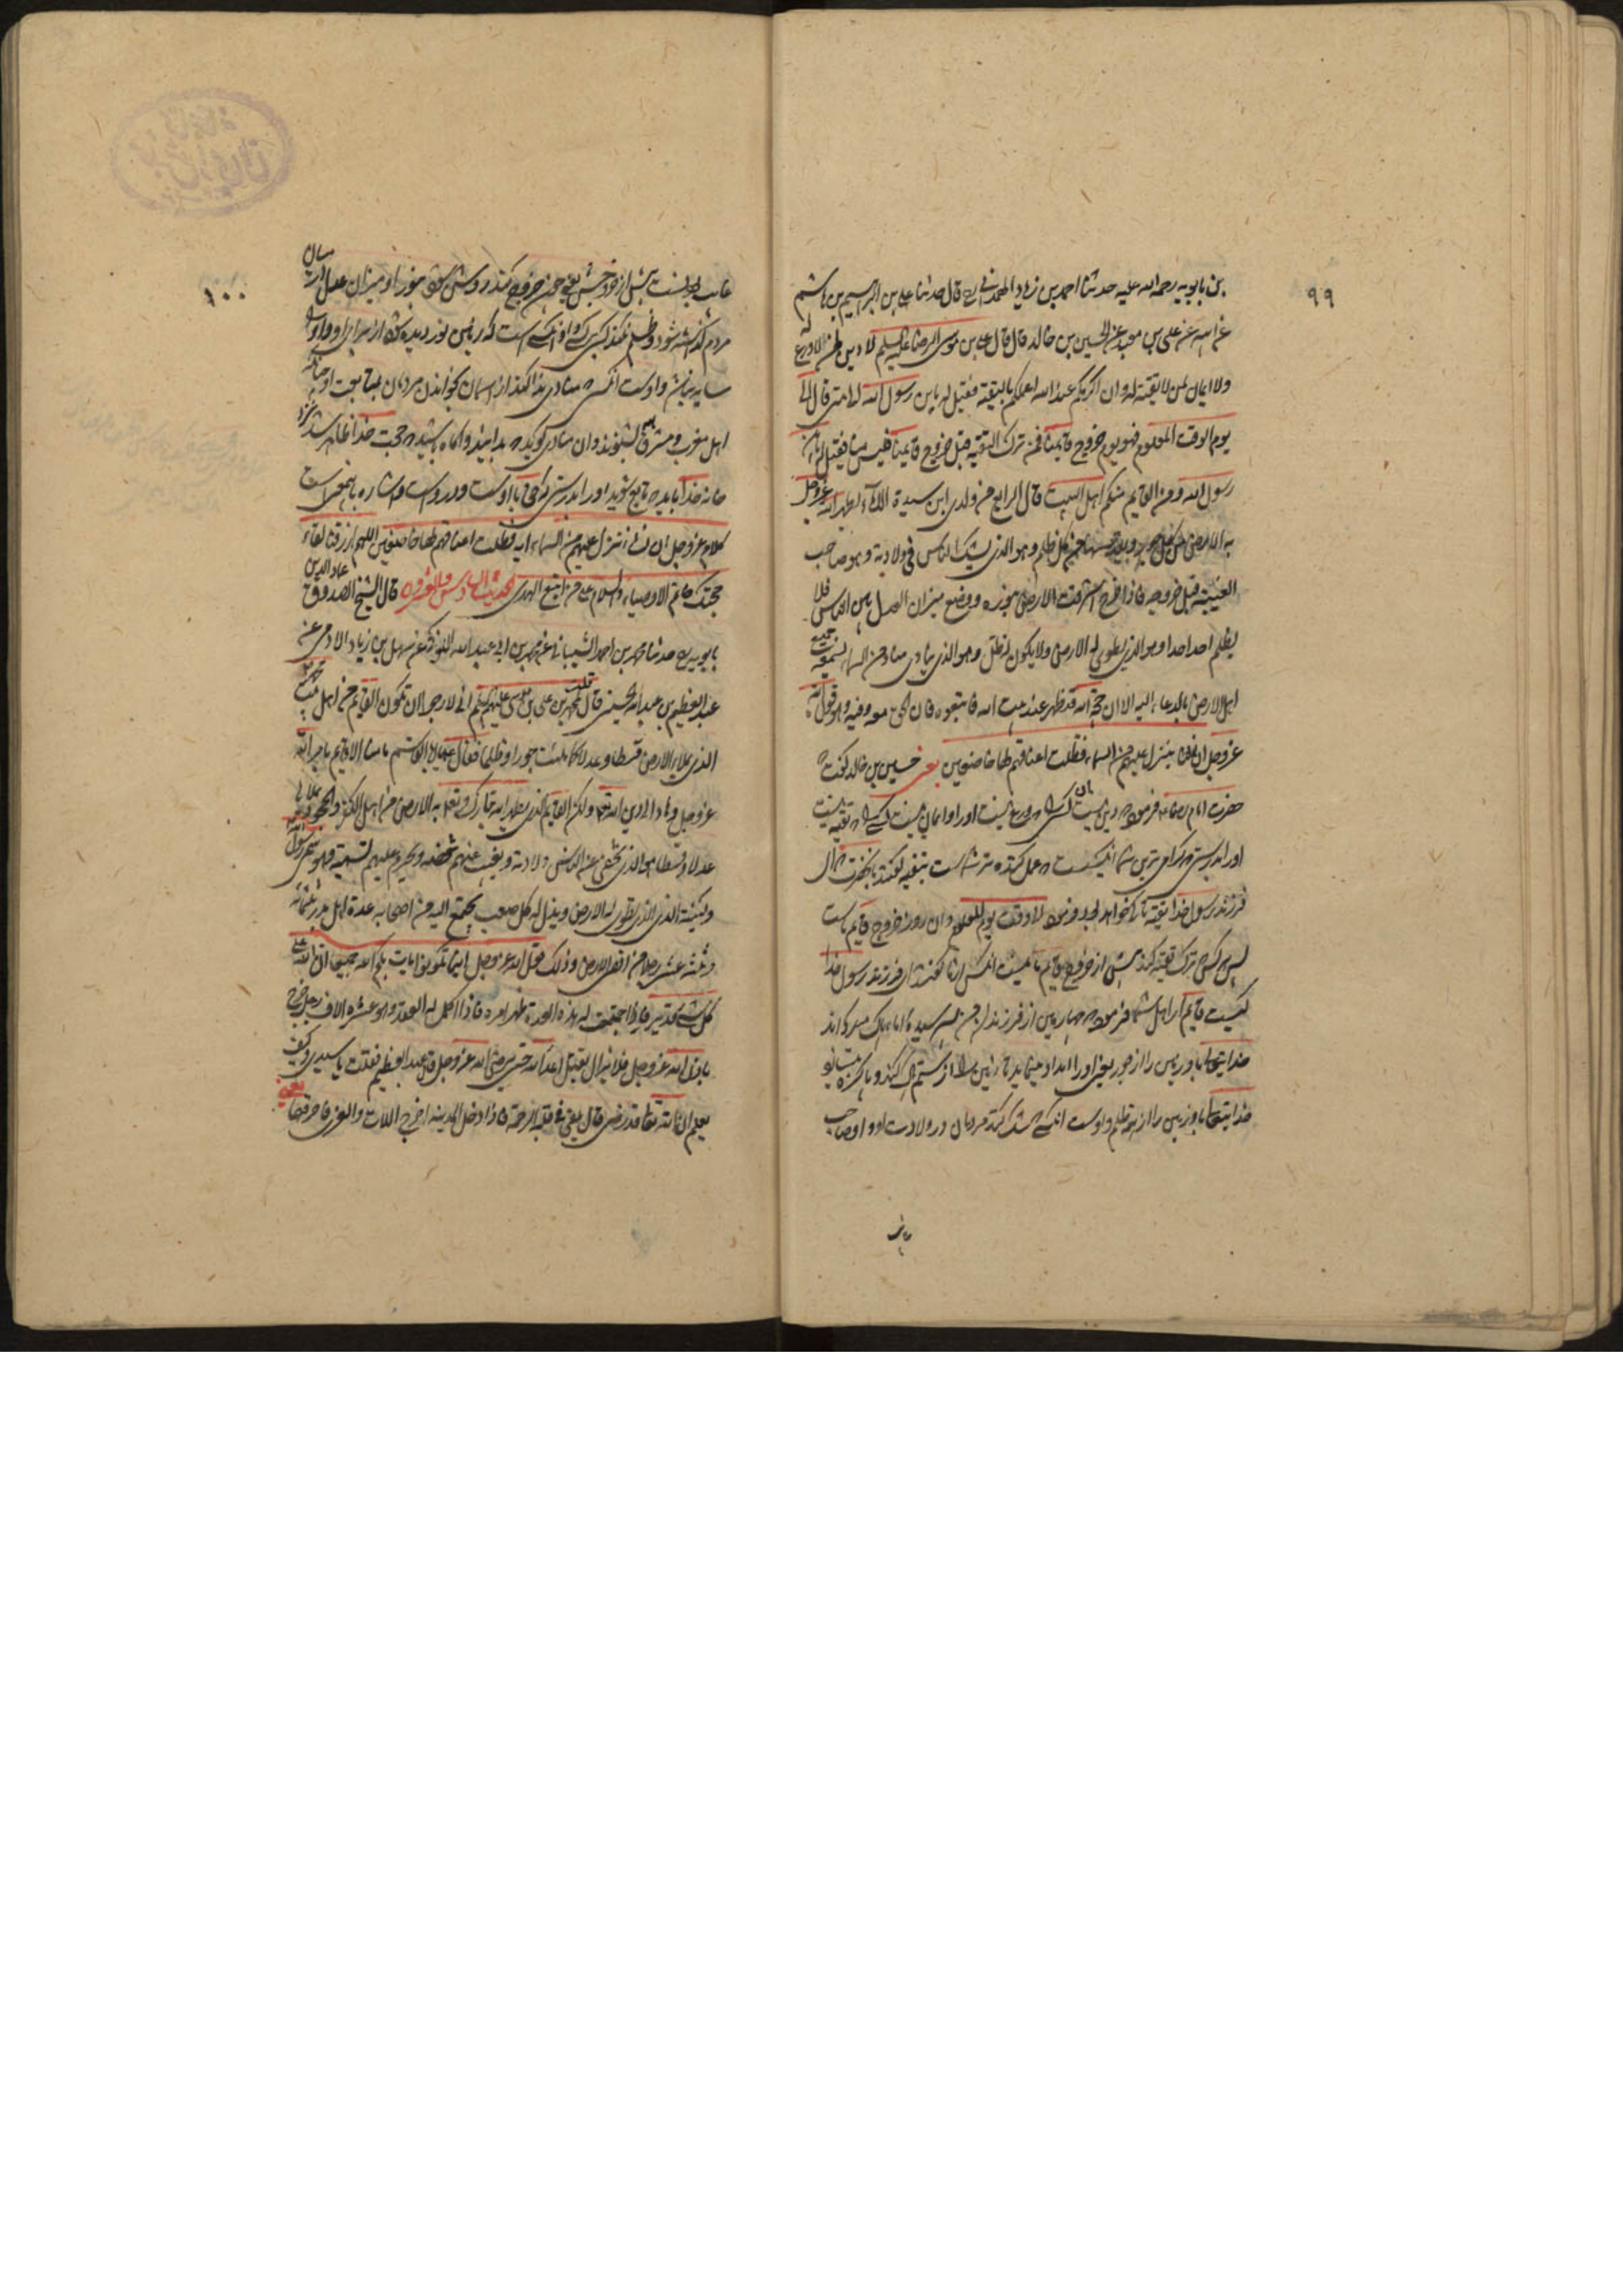 ۹۹
بن بابویه رحمه الله علیه حدثنا احمد بن زیاد الهمدانی ره قال حدثنا علی بن ابراهیم بن هاشم
عن ابیه عن علی بن معبد عن الحسین بن خالد قال قال علی بن موسی الرضا علیه السلم لا دین لمن لا ورع له
ولا ایمان لمن لا تقیة له وان اکرمکم عند الله اعملکم بالتقیة فقیل له یابن رسول الله الی متی قال الی
یوم الوقت المعلوم فهو یوم خروج قایمنا فمن ترک التقیة قبل خروج قایمنا فلیس منا فقیل له یابن
رسول الله ومن القایم منکم اهل البیت قال الرابع من ولدی ابن سیدة الاماء یطهر الله عزوجل
به الارض من کل جور ویقدسها من کل ظلم وهو الذی یشک الناس فی ولادته وهو صاحب
الغیبة قبل خروجه فاذا خرج اشرقت الارض بنوره ووضع میزان العدل بین الناس فلا
یظلم احد احدا وهو الذی یطوی له الارض ولا یکون له ظل وهو الذی ینادی مناد من السماء یسمعه جمیع
اهل الارض بالدعاء الیه الا ان حجة الله قد ظهر عند بیت الله فاتبعوه فان الحق معه وفیه وهو قول الله
عزوجل ان نشا ننزل علیهم من السماء فظلت اعناقهم لها خاضعین یعنی حسین بن خالد کفت که
حضرت امام رضا فرمود که دین نیست ان کس را که ورع نیست اورا و ایمان نیست کسی را که تقیه نیست
اورا بدرستی که کرامی ترین شما انکس است که عمل کننده تر شماست بتقیه کفتند بانحضرت که ای
فرزند رسول خدا تقیه تا کی خواهد بود فرمود تا وقت یوم المعلوم وان روز خروج قایم ماست
پس کسی که ترک تقیه کند پیش از خروج قایم ما نیست انکس از ما کفتند ای فرزند رسول خدا
کیست قایم از اهل شما فرمود که چهارمین از فرزندان من پسر سیده اماء پاک میکرداند
خدایتعالی باو زمین را از جور یعنی اورا امداد مینماید تا زمین را از ستم پاک کند و پاکیزه میسازد
خدایتعالی باو زمین را از هر ظلم واوست انکسی که شک کنند مردمان در ولادت او و او صاحب
۱۰۰
غایب بودنست پیش از خروجش یعنی چون خروج کند روشن شود بنور او میزان عدل در میان
مردم کذاشته شود و ظلم نکند کسی کسی را و او انکسی است که زمین نوردیده شود از برای او و او را
سایه نباشد و اوست انکس که منادی ندا کند از اسمان بخواندن مردمان بمتابعت او چنانکه
اهل مغرب و مشرق همه بشنوند و ان منادی کوید که بدانید و اکاه باشید که حجت خدا ظاهر شد نزد
خانه خدا باید که تابع شوید اورا بدرستی که حق با اوست و در اوست و اشاره باینمعنی است
کلام عزوجل ان نشا ننزل علیهم من السماء ایه فظلت اعناقهم لها خاضعین اللهم ارزقنا لقاء
حجتک خاتم الاوصیاء والسلام علی من اتبع الهدی الحدیث السادس والعشرون قال الشیخ الصدوق عماد الدین
بابویه ره حدثنا محمد بن احمد الشیبانی عن محمد بن ابی عبدالله الکوفی عن سهل بن زیاد الادمی عن
عبدالعظیم بن عبدالله الحسنی قال قلت لمحمد بن علی بن موسی علیهم السلم انی لارجو ان تکون القایم من اهل بیت محمد
الذی یملاء الارض قسطا وعدلا کما ملئت جورا وظلما فقال یا ابا القاسم ما منا الا قایم بامر الله
عزوجل وهاد الی دین الله ولکن القایم الذی یطهر الله تبارک وتعالی به الارض من اهل الکفر والجحود ویملاها
عدلا وقسطا هو الذی یخفی عن الناس ولادته ویغیب عنهم شخصه ویحرم علیهم تسمیته وهو سمی رسول الله
وکنیته الذی یطوی له الارض ویذل له کل صعب یجتمع الیه من اصحابه عدة اهل بدر ثلثمائه
وثلثه عشر رجلا من اقصی الارض وذلک قول الله عزوجل اینما تکونوا یات بکم الله جمیعا ان الله علی
کل شی قدیر فاذا اجتمعت له هذه العدة ظهر امره فاذا اکمل له العقد وهو عشرة الاف رجل خرج
باذن الله عزوجل فلا یزال یقتل اعداء الله حتی یرضی الله عزوجل قال عبدالعظیم فقلت یا سیدی وکیف
یعلم ان الله تعالی قد رضی قال یلقی فی قلبه الرحمة فاذا دخل المدینه اخرج اللات والعزی فاحرقهما
یعنی